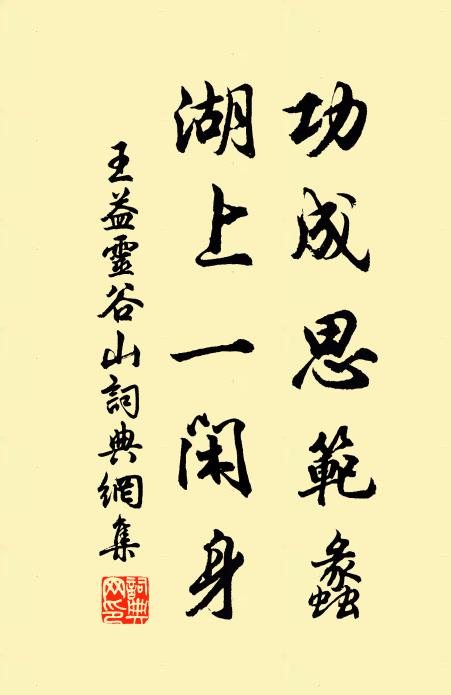 功成思範蠡
湖上一閑身
王益靈谷山詞典網集
詞典網印